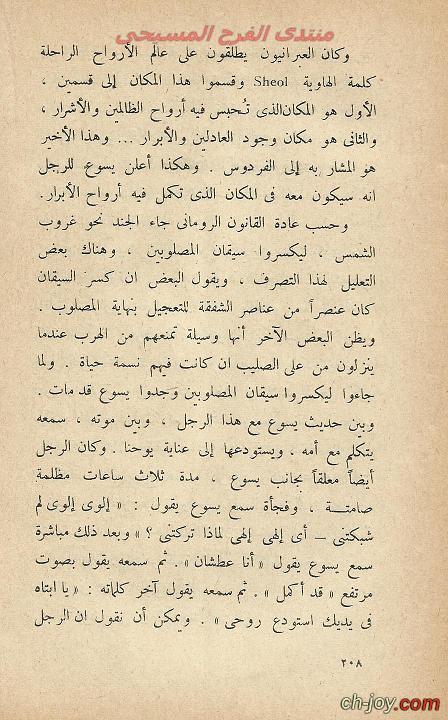 منتدى الفرح المسيحي
وكان العبرانيون يطلقون على عالم الأرواح الراحلة
كلمة الهاوية Sheol وقسموا هذا المكان إلى قسمين ،
الأول هو المكان الذى تُحبس فيه أرواح الظالمين والأشرار ،
والثانى هو مكان وجود العادلين والأبرار ... وهذا الأخير
هو المشار به إلى الفردوس . وهكذا أعلن يسوع للرجل
انه سيكون معه فى المكان الذى تكمل فيه أرواح الأبرار.
وحسب عادة القانون الرومانى جاء الجند نحو غروب
الشمس ، ليكسروا سيقان المصلوبين ، وهناك بعض
التعليل لهذا التصرف ، ويقول البعض ان كسر السيقان
كان عنصراً من عناصر الشفقة للتعجيل بنهاية المصلوب .
ويظن البعض الآخر أنها وسيلة تمنعهم من الهرب عندما
ينزلون من على الصليب ان كانت فيهم نسمة حياة . ولما
جاءوا ليكسروا سيقان المصلوبين وجدوا يسوع قد مات .
وبين حديث يسوع مع هذا الرجل ، وبين موته ، سمعه
يتكلم مع أمه ، ويستودعها إلى عناية يوحنا . وكان الرجل
أيضاً معلقاً بجانب يسوع ، مدة ثلاث ساعات مظلمة
صامتـة ، وفجأة سمع يسوع يقول : « إلوى إلوى لم
شبكتنى ــ أى إلهى إلهى لماذا تركتنى ؟ » وبعد ذلك مباشرة
سمع يسوع يقول « أنا عطشان » . ثم سمعه يقول بصوت
مرتفع « قد أكمل » . ثم سمعه يقول آخر كلماته : « يا ابتاه
فى يديك استودع روحى » . ويمكن أن نقول ان الرجل
٢٠٨
ch-joy.com